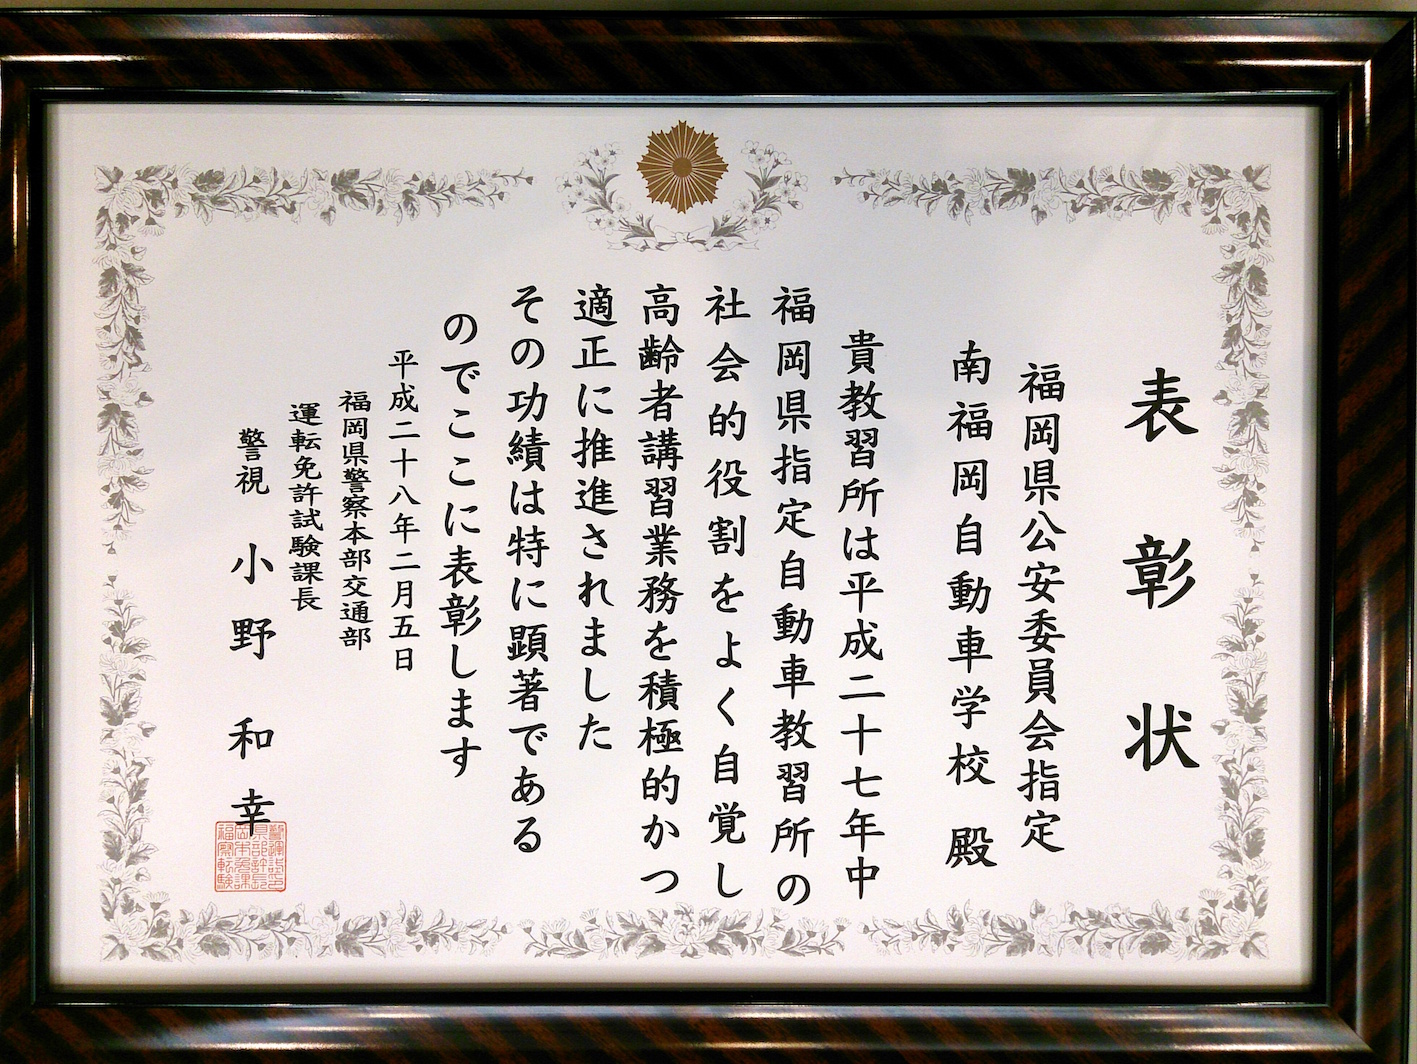 表彰状
福岡県公安委員会指定
南福岡自動車学校 殿
貴教習所は平成二十七年中
福岡県指定自動車教習所の
社会的役割をよく自覚し
高齢者講習業務を積極的かつ
適正に推進されました
その功績は特に顕著である
のでここに表彰します
平成二十八年二月五日
福岡県警察本部交通部
運転免許試験課長
警視 小野 和幸